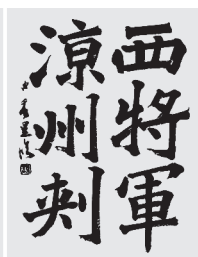 西將軍
涼州刺